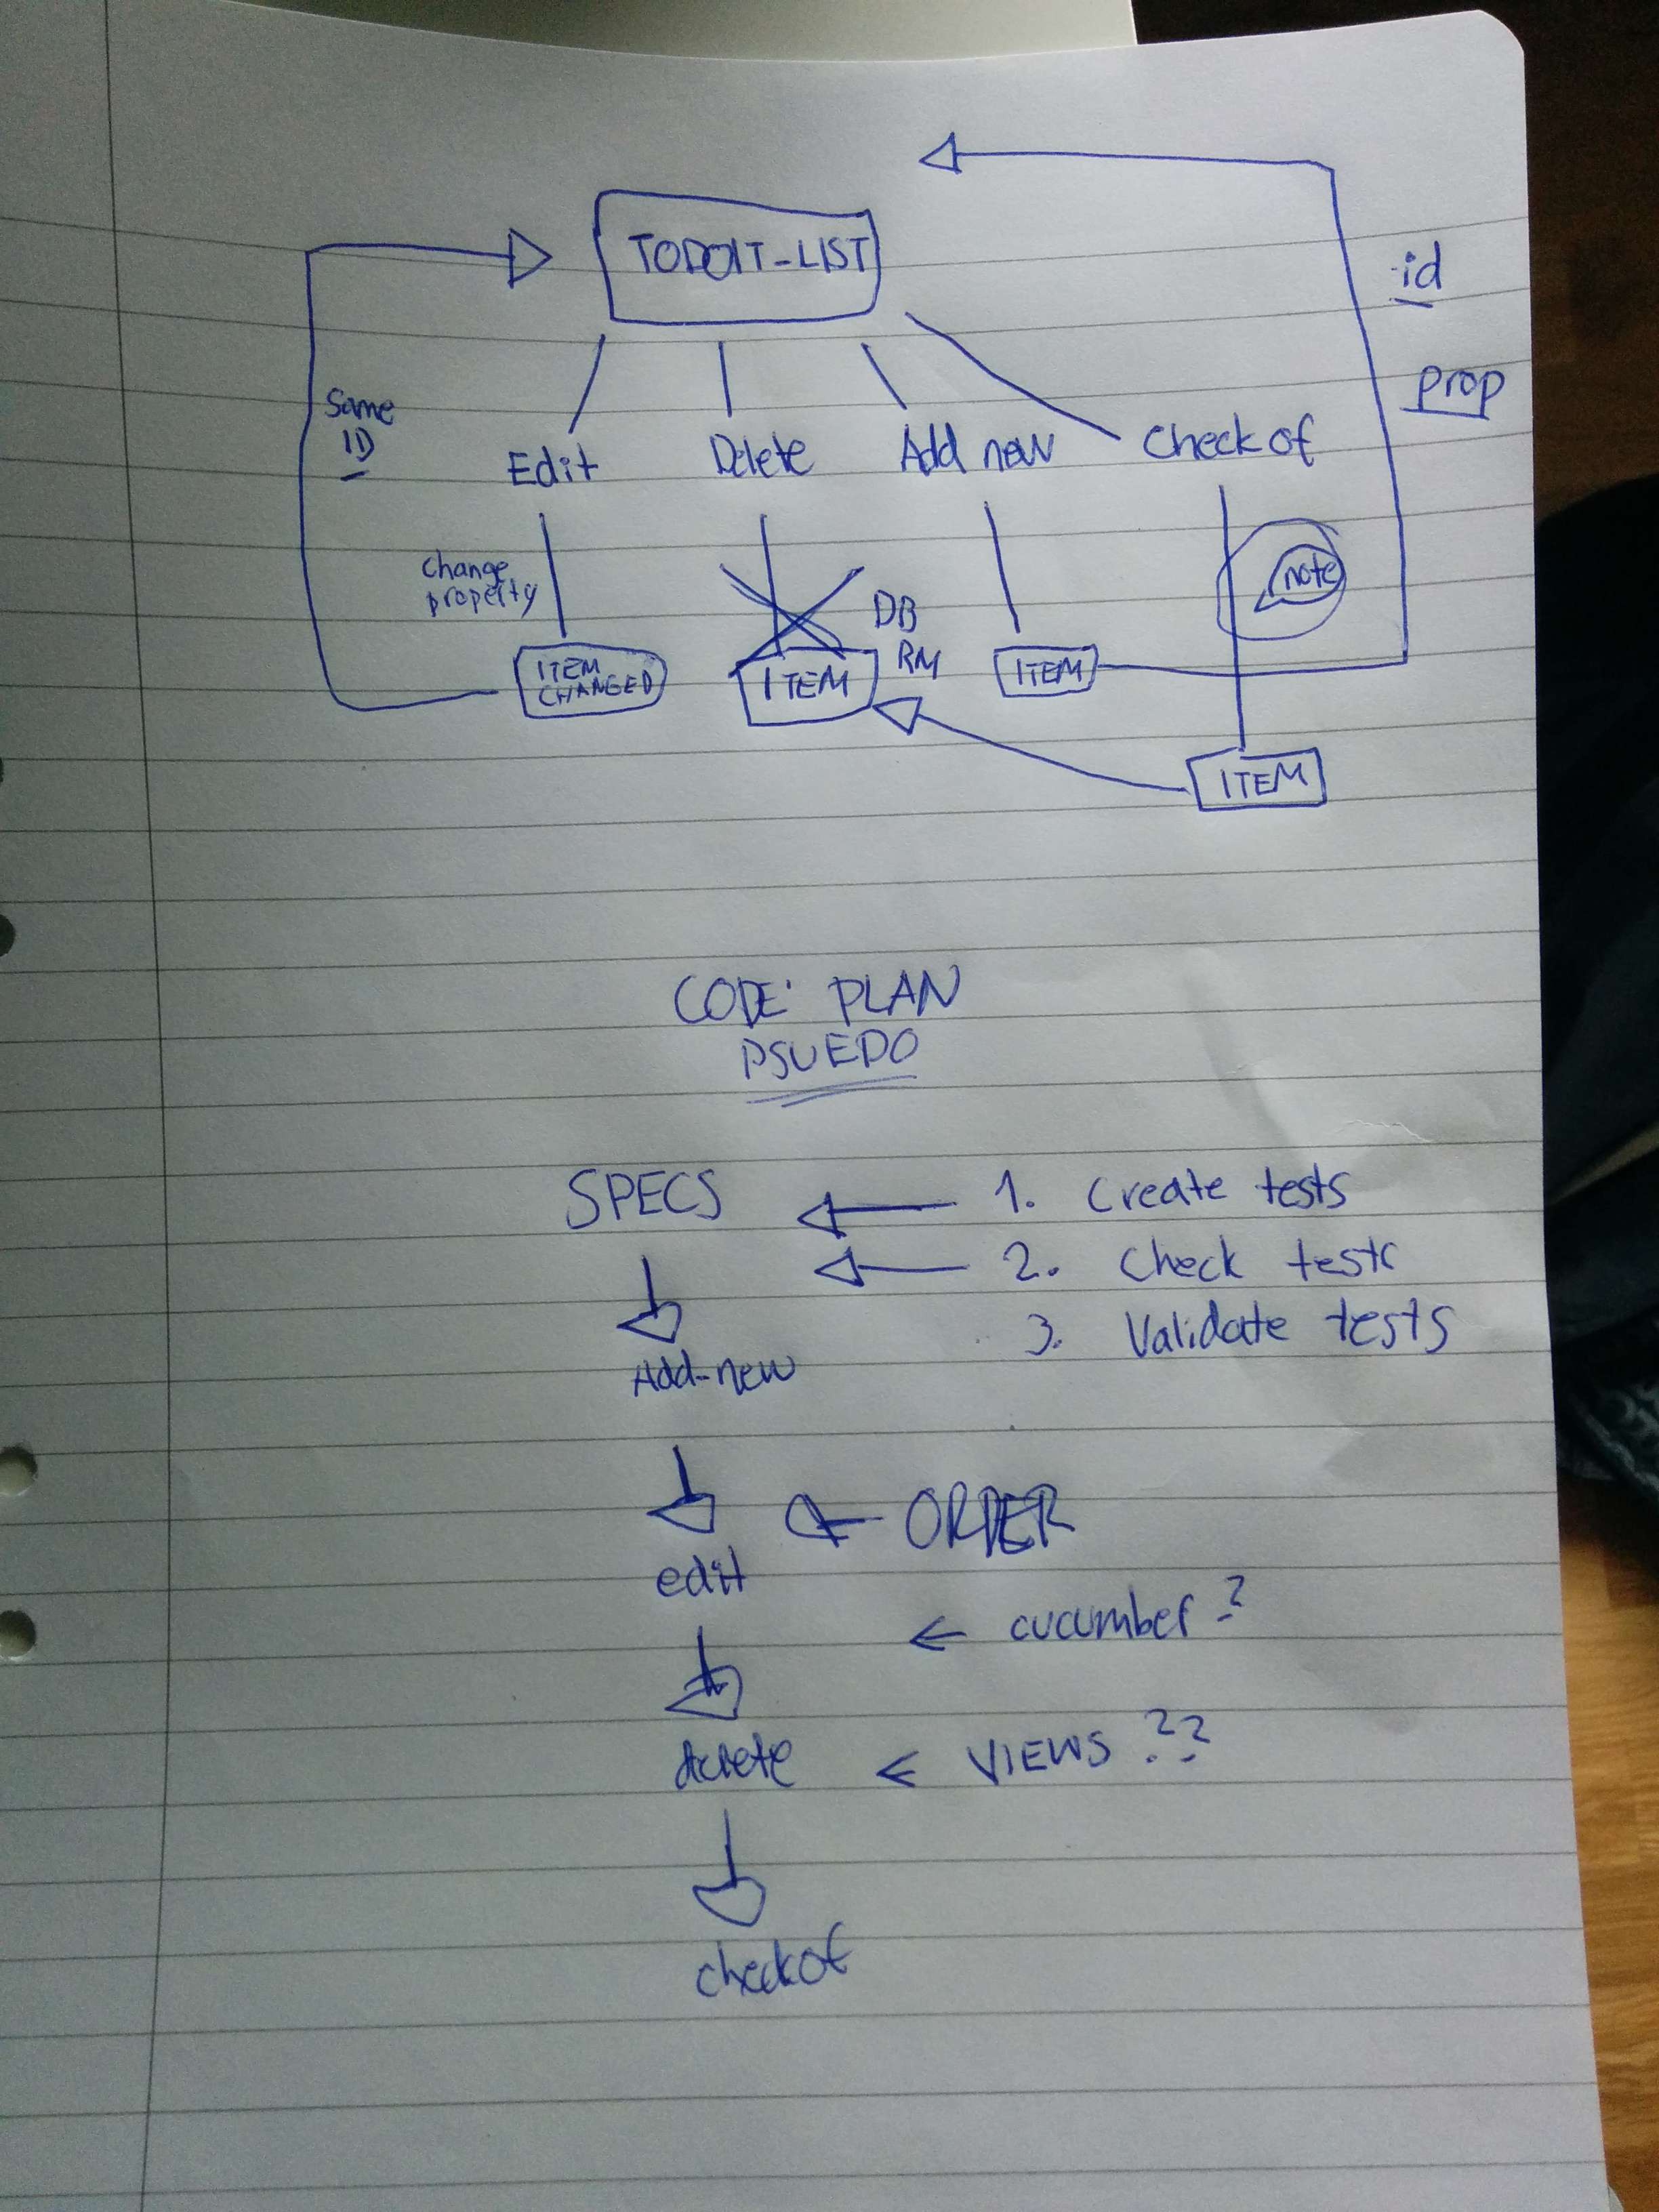 TODOIT-LIST
id
prop
Same
ID
Edit
Delete
Add new
Check of
Change
property
note
DB
RM
ITEM
CHANGED
ITEM
ITEM
ITEM
CODE PLAN
PSUEDO
SPECS
1. Create tests
2. Check tests
3. Validate tests
Add-new
ORDER
edit
cucumber?
delete
VIEWS ??
checkof